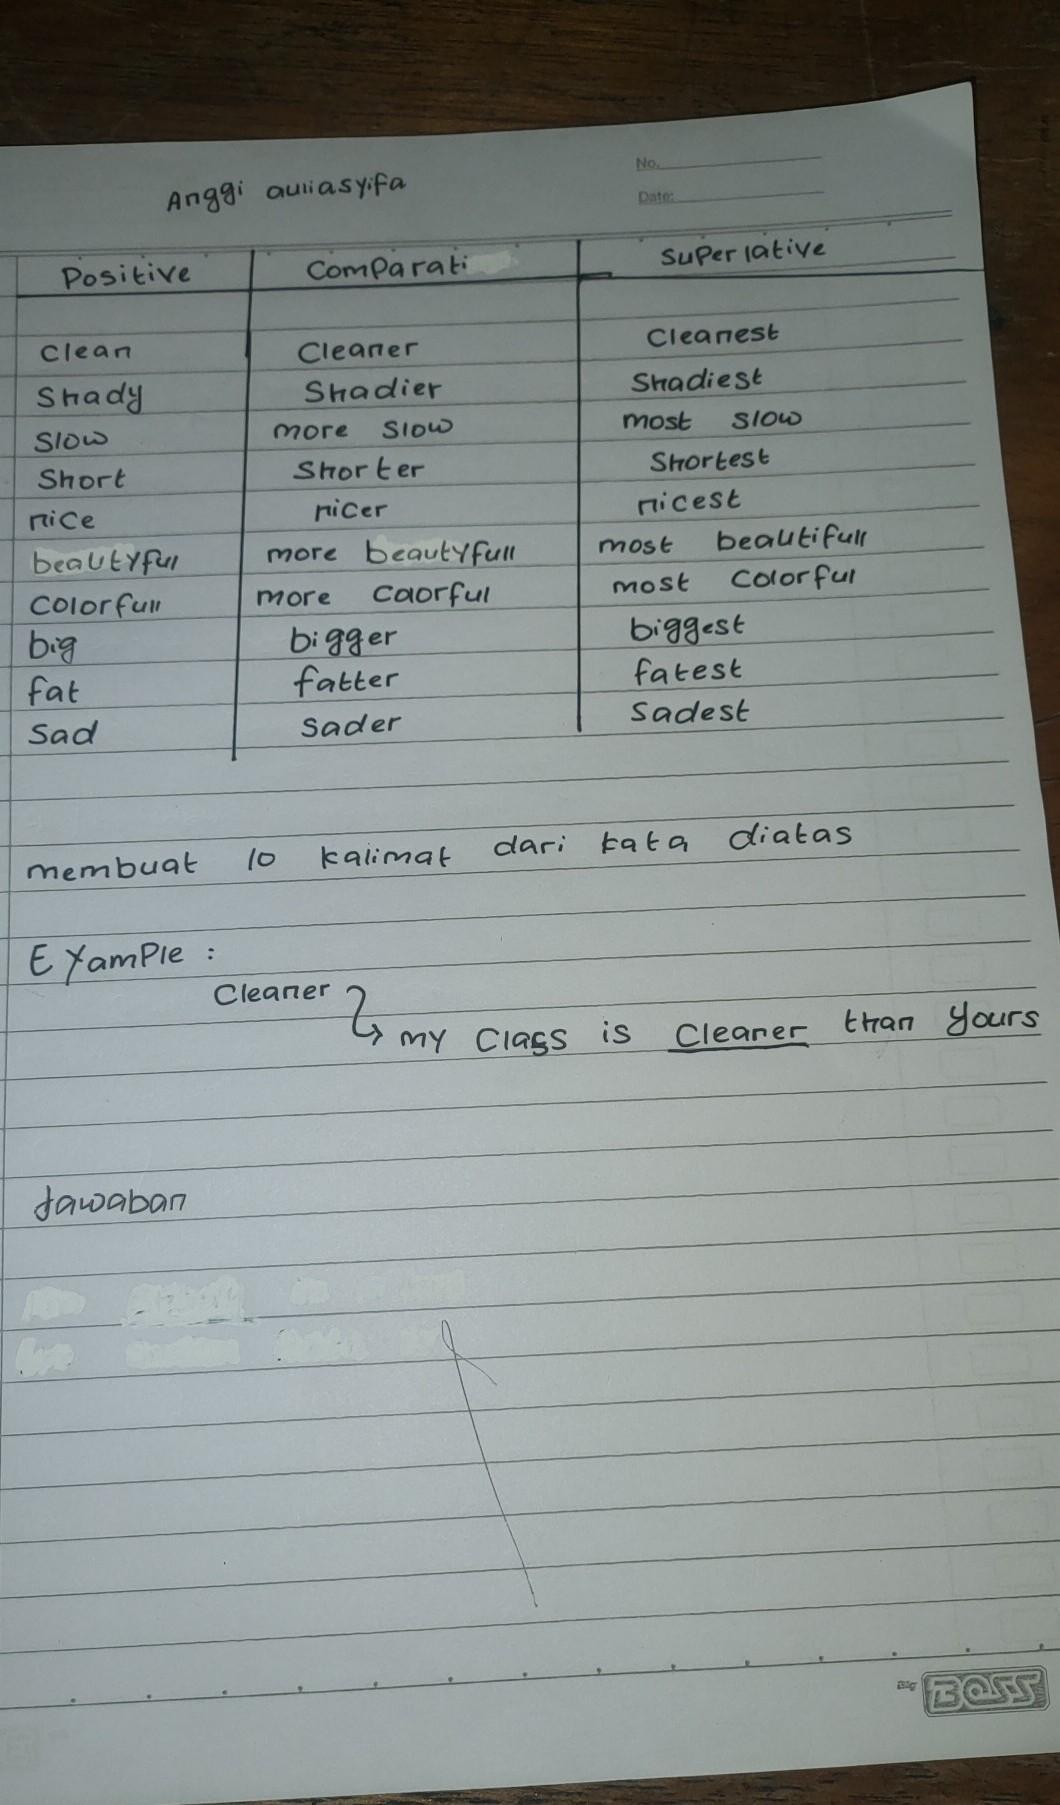 No.
Anggi auliasyifa
Date:
Positive Comparati Superlative
Clean Cleaner Cleanest
Shady Shadier Shadiest
Slow more slow most slow
Short Shorter Shortest
nice nicer nicest
beautyfull more beautyfull most beautifull
Colorfull more Caorful most Colorful
big bigger biggest
fat fatter fatest
Sad Sader Sadest
membuat 10 kalimat dari kata diatas
Example :
Cleaner
my Class is Cleaner than yours
Jawaban
Big BOSS